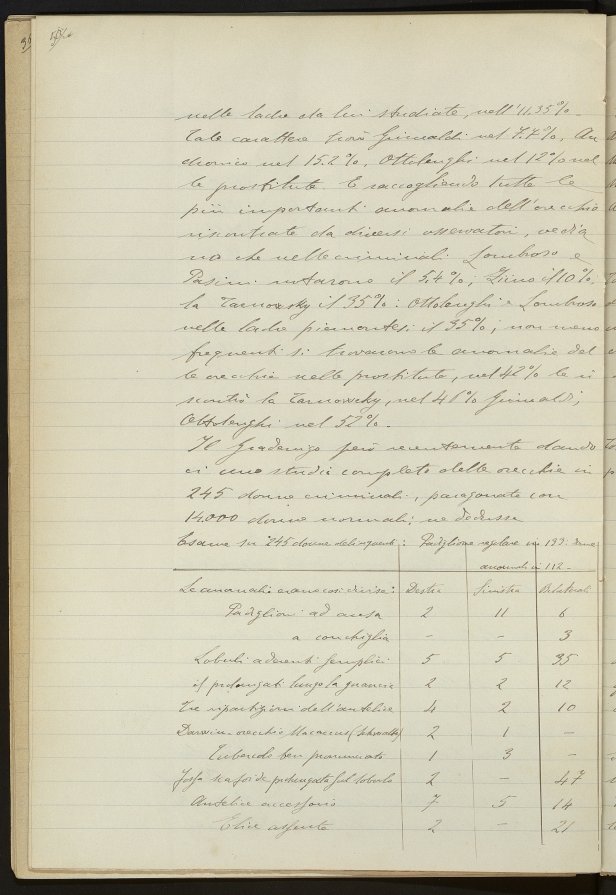 nelle ladre da lui studiate, nell'11.35%.
Tale carattere trovò Grimaldi nel 7.7%, An
dronico nel 15.2%, Ottolenghi nel 12% nel
le prostitute. E raccogliendo tutte le
più importanti anomalie dell'orecchio
riscontrate da diversi osservatori, vedia
mo che nelle criminali Lombroso e
Pasini notarono il 5,4%, Zino il 10%,
la Tarnowsky il 35%: Ottolenghi e Lombroso
nelle ladre piemontesi il 35%, non meno
frequenti si trovarono le anomalie del
le orecchie nelle prostitute, nel 42% le ri
scontrò la Tarnowsky, nel 46% Grimaldi,
Ottolenghi nel 52%.
Il Gradenigo però recentemente dando
ci uno studio completo delle orecchie in
245 donne criminali, paragonate con
14.000 donne normali; ne dedusse
Esame su 245 donne delinquenti: Padiglione regolare in 133 donne
anomali in 112.
Le anomalie erano così divise: Destra Sinistra Bilaterali
Padiglioni ad ansa 2 11 6
a conchiglia - - 3
Lobuli aderenti semplici 5 5 35
id prolungati lungo la guancia 2 2 12
Tre ripartizioni dell'antelice 4 2 10
Darwin-orecchio Macacus (Schwalbe) 2 1 -
Tubercolo ben pronunciato 1 3 -
Fossa scafoide prolungata sul lobulo 2 - 47
Antelice accessorio 7 5 14
Elice assente 2 - 21